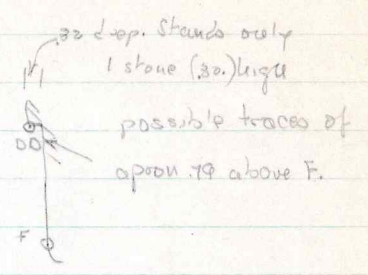 .32 deep. Stands only
1 stone (.30.) high
possible traces of
apron .79 above F.
DD
F